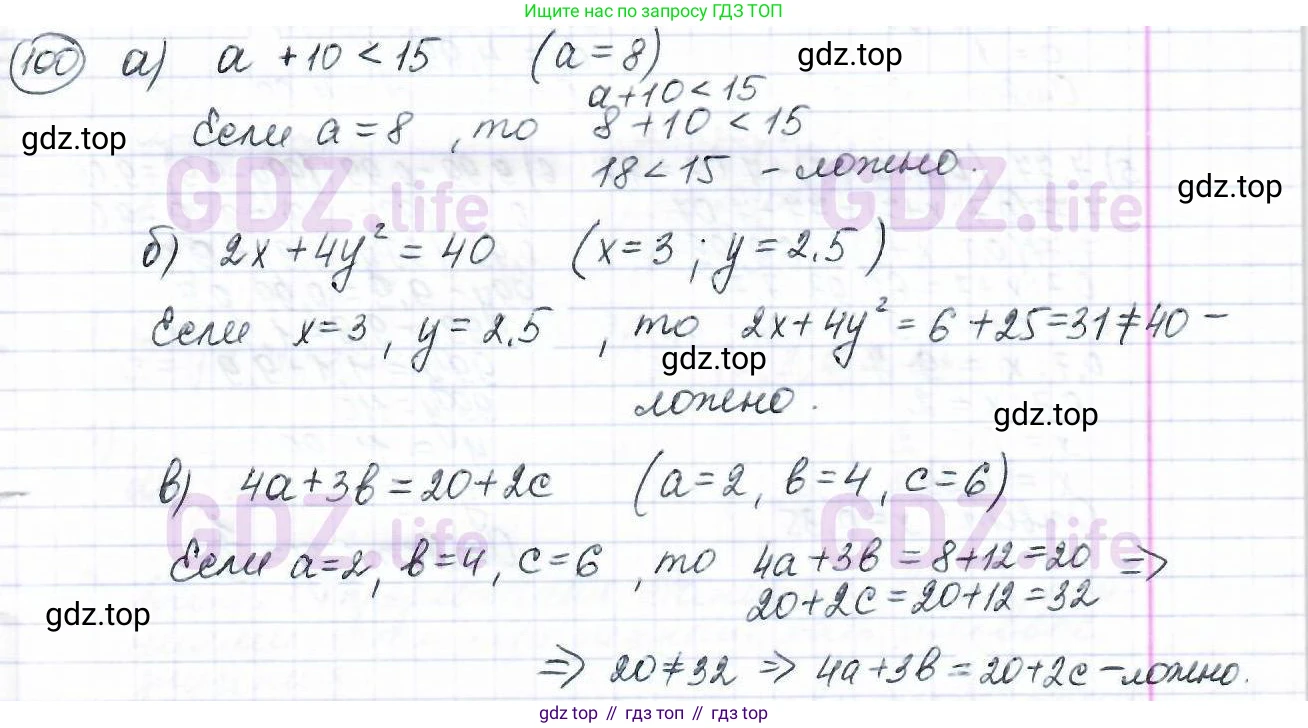 Ищите нас по запросу ГДЗ ТОП
100 а) a + 10 < 15 (a = 8)
gdz.top
a + 10 < 15
Если a = 8, то 8 + 10 < 15
gdz.top
18 < 15 - ложно.
GDZ.life GDZ.life
gdz.top
б) 2x + 4y² = 40 (x = 3; y = 2.5)
Если x = 3, y = 2.5, то 2x + 4y² = 6 + 25 = 31 ≠ 40 -
gdz.top
ложно.
gdz.top
в) 4a + 3b = 20 + 2c (a = 2, b = 4, c = 6)
GDZ.life GDZ.life
Если a = 2, b = 4, c = 6, то 4a + 3b = 8 + 12 = 20 =>
20 + 2c = 20 + 12 = 32
gdz.top
=> 20 ≠ 32 => 4a + 3b = 20 + 2c - ложно.
gdz.top // гдз топ // gdz.top